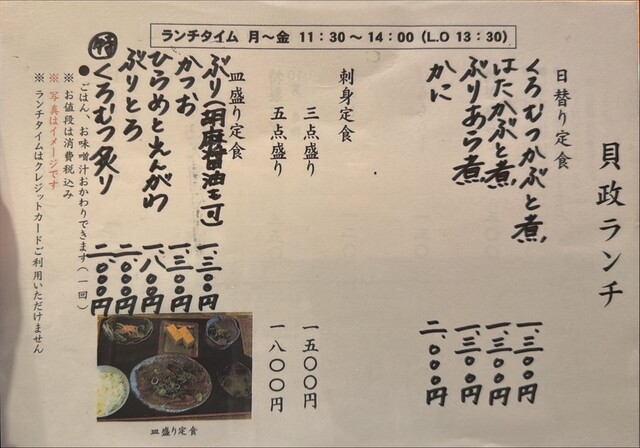 ランチタイム 月～金 11：30～14：00（L.O 13：30）
貝政ランチ
日替り定食
くろむつかぶと煮 一、三〇〇円
はたかぶと煮 一、三〇〇円
ぶりあら煮 一、三〇〇円
かに 二、〇〇〇円
刺身定食
三点盛り 一五〇〇円
五点盛り 一八〇〇円
皿盛り定食
ぶり（胡麻醤油王可） 一、三〇〇円
かつお 一、三〇〇円
ひらめとえんがわ 一、八〇〇円
ぶりとろ 二、〇〇〇円
特 くろむつ炙り 二、〇〇〇円
●ごはん、お味噌汁おかわりできます（一回）
※ お値段は消費税込み
※ 写真はイメージです
※ ランチタイムはクレジットカードご利用いただけません
皿盛り定食